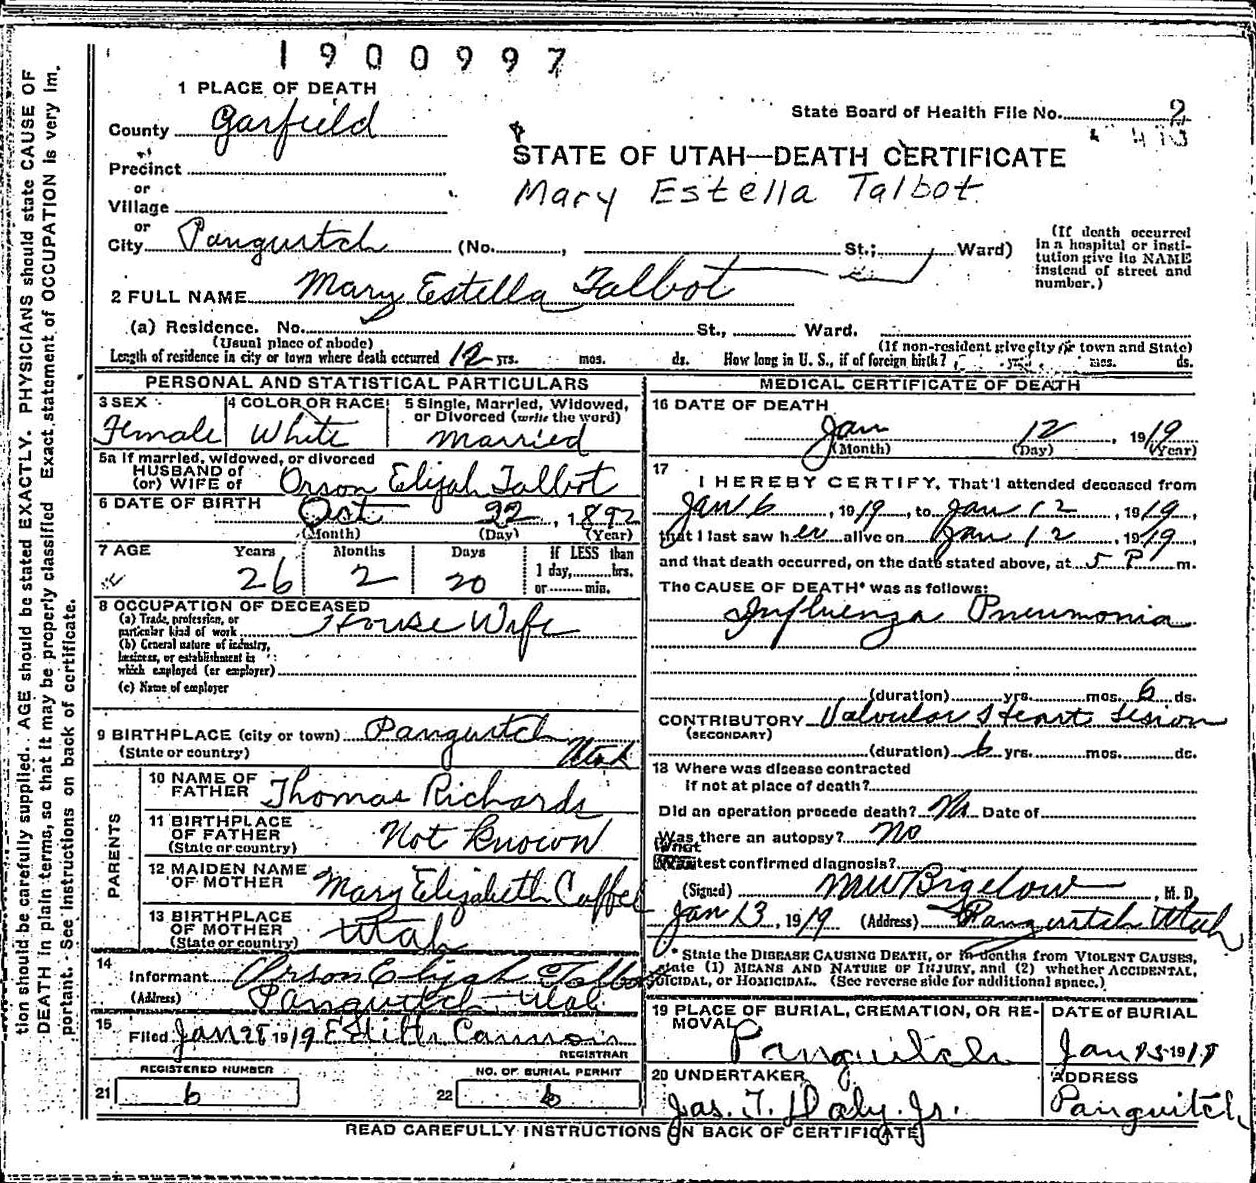 1900997
1 PLACE OF DEATH
State Board of Health File No. 2
County Garfield
STATE OF UTAH—DEATH CERTIFICATE
Precinct
or
Mary Estella Talbot
Village
or
City Panguitch (No. , St.; Ward)
(If death occurred in a hospital or institution give its NAME instead of street and number.)
2 FULL NAME Mary Estella Talbot
(a) Residence. No. St., Ward.
(Usual place of abode) (If non-resident give city or town and State)
Length of residence in city or town where death occurred 12 yrs. mos. ds. How long in U. S., if of foreign birth? yrs. mos. ds.
PERSONAL AND STATISTICAL PARTICULARS
3 SEX 4 COLOR OR RACE 5 Single, Married, Widowed,
or Divorced (write the word)
Female White married
5a If married, widowed, or divorced
HUSBAND of
(or) WIFE of Orson Elijah Talbot
6 DATE OF BIRTH Oct 22, 1892
(Month) (Day) (Year)
7 AGE Years Months Days If LESS than
1 day, hrs.
26 2 20 or min.
8 OCCUPATION OF DECEASED
(a) Trade, profession, or
particular kind of work House Wife
(b) General nature of industry,
business, or establishment in
which employed (or employer)
(c) Name of employer
9 BIRTHPLACE (city or town) Panguitch
(State or country) Utah
PARENTS
10 NAME OF
FATHER Thomas Richards
11 BIRTHPLACE
OF FATHER Not Known
(State or country)
12 MAIDEN NAME
OF MOTHER Mary Elizabeth
13 BIRTHPLACE
OF MOTHER Utah
(State or country)
14
Informant Orson Elijah Talbot
(Address) Panguitch Utah
15
Filed Jan 28 1919
REGISTRAR
REGISTERED NUMBER NO. OF BURIAL PERMIT
21 6 22 6
MEDICAL CERTIFICATE OF DEATH
16 DATE OF DEATH
Jan 12, 1919
(Month) (Day) (Year)
17
I HEREBY CERTIFY, That I attended deceased from
Jan 6, 1919, to Jan 12, 1919,
that I last saw her alive on Jan 12, 1919,
and that death occurred, on the date stated above, at 5 P m.
The CAUSE OF DEATH* was as follows:
Influenza Pneumonia
(duration) yrs. mos. 6 ds.
CONTRIBUTORY Valvular Heart Lesion
(SECONDARY)
(duration) 6 yrs. mos. ds.
18 Where was disease contracted
if not at place of death?
Did an operation precede death? No Date of
Was there an autopsy? No
What test confirmed diagnosis?
(Signed) MW Bigelow, M. D.
Jan 13, 1919 (Address) Panguitch Utah
* State the DISEASE CAUSING DEATH, or in deaths from VIOLENT CAUSES,
state (1) MEANS AND NATURE OF INJURY, and (2) whether ACCIDENTAL,
SUICIDAL, or HOMICIDAL. (See reverse side for additional space.)
19 PLACE OF BURIAL, CREMATION, OR RE-
MOVAL Panguitch
DATE of BURIAL
Jan
20 UNDERTAKER
Jas. T. Daly Jr.
ADDRESS
Panguitch
READ CAREFULLY INSTRUCTIONS ON BACK OF CERTIFICATE
tion should be carefully supplied. AGE should be stated EXACTLY. PHYSICIANS should state CAUSE OF
DEATH in plain terms, so that it may be properly classified. Exact statement of OCCUPATION is very im-
portant. See instructions on back of certificate.